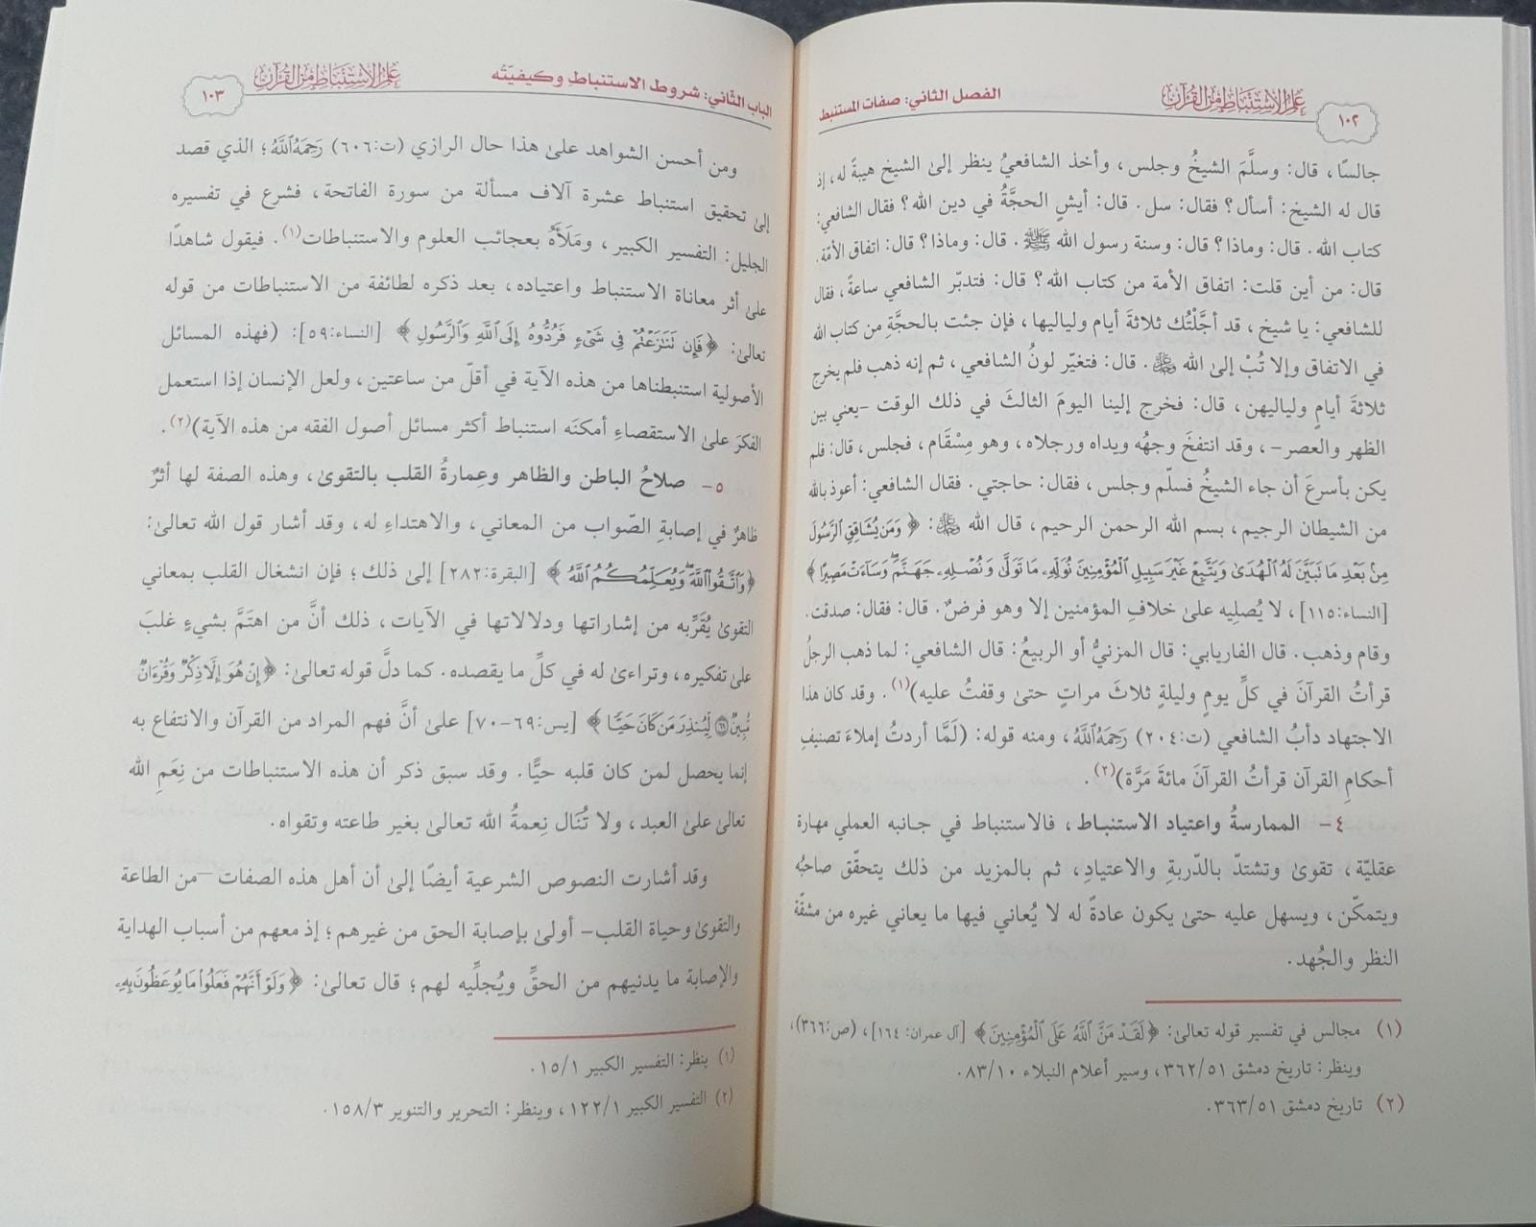 ١٠٢
علم الاستنباط من القرآن
الفصل الثاني: صفات المستنبط
جالسًا، قال: وسلَّمَ الشيخُ وجلس، وأخذ الشافعيُ ينظر إلىٰ الشيخ هيبةً له، إذ
قال له الشيخ: أسأل؟ فقال: سل. قال: أيشٍ الحجَّةُ في دين الله؟ فقال الشافعي:
كتاب الله. قال: وماذا؟ قال: وسنة رسول الله ﷺ. قال: وماذا؟ قال: اتفاق الأمّة.
قال: من أين قلت: اتفاق الأمة من كتاب الله؟ قال: فتدبّر الشافعي ساعةً، فقال
للشافعي: يا شيخ، قد أجَّلْتُك ثلاثةَ أيام ولياليها، فإن جئت بالحجَّةِ من كتاب الله
في الاتفاق وإلا تُبْ إلىٰ الله ﷻ. قال: فتغيّر لونُ الشافعي، ثم إنه ذهب فلم يخرج
ثلاثةَ أيامٍ ولياليهن، قال: فخرج إلينا اليومَ الثالثَ في ذلك الوقت -يعني بين
الظهر والعصر-، وقد انتفخَ وجهُه ويداه ورجلاه، وهو مِسْقَام، فجلس، قال: فلم
يكن بأسرعَ أن جاء الشيخُ فسلّم وجلس، فقال: حاجتي. فقال الشافعي: أعوذ بالله
من الشيطان الرجيم، بسم الله الرحمن الرحيم، قال الله ﷻ: ﴿وَمَن يُشَاقِقِ ٱلرَّسُولَ
مِنۢ بَعْدِ مَا تَبَيَّنَ لَهُ ٱلْهُدَىٰ وَيَتَّبِعْ غَيْرَ سَبِيلِ ٱلْمُؤْمِنِينَ نُوَلِّهِۦ مَا تَوَلَّىٰ وَنُصْلِهِۦ جَهَنَّمَ ۖ وَسَآءَتْ مَصِيرًا﴾
[النساء:١١٥]، لا يُصلِيه علىٰ خلافِ المؤمنين إلا وهو فرضٌ. قال: فقال: صدقت.
وقام وذهب. قال الفاريابي: قال المزنيُّ أو الربيعُ: قال الشافعي: لما ذهب الرجلُ
قرأتُ القرآنَ في كلِّ يومٍ وليلةٍ ثلاثَ مراتٍ حتىٰ وقفتُ عليه)(١). وقد كان هذا
الاجتهاد دأبُ الشافعي (ت:٢٠٤) رَحِمَهُ ٱللَّهُ، ومنه قوله: (لَمَّا أردتُ إملاءَ تصنيفِ
أحكامِ القرآن قرأتُ القرآنَ مائةَ مَرَّة)(٢).
٤- الممارسةُ واعتياد الاستنبـاط، فالاستنباط في جـانبه العملي مهارة
عقليّة، تقوىٰ وتشتدّ بالدّربةِ والاعتيادِ، ثم بالمزيد من ذلك يتحقّق صاحبُه
ويتمكّن، ويسهل عليه حتىٰ يكون عادةً له لا يُعاني فيها ما يعاني غيره من مشقّة
النظر والجُهد.
(١) مجالس في تفسير قوله تعالىٰ: ﴿لَقَدْ مَنَّ ٱللَّهُ عَلَى ٱلْمُؤْمِنِينَ﴾ [آل عمران: ١٦٤]، (ص:٣٦٦)،
وينظر: تاريخ دمشق ٣٦٢/٥١، وسير أعلام النبلاء ٨٣/١٠.
(٢) تاريخ دمشق ٣٦٣/٥١.
الباب الثَّاني: شروط الاستنباط وكيفيّتُه
علم الاستنباط من القرآن
١٠٣
ومن أحسن الشواهد علىٰ هذا حال الرازي (ت:٦٠٦) رَحِمَهُ ٱللَّهُ؛ الذي قصد
إلىٰ تحقيق استنباط عشرة آلاف مسألة من سورة الفاتحة، فشرع في تفسيره
الجليل: التفسير الكبير، ومَلَأَهُ بعجائب العلوم والاستنباطات(١). فيقول شاهدًا
علىٰ أثر معاناة الاستنباط واعتياده، بعد ذكره لطائفة من الاستنباطات من قوله
تعالىٰ: ﴿فَإِن تَنَٰزَعْتُمْ فِى شَىْءٍ فَرُدُّوهُ إِلَى ٱللَّهِ وَٱلرَّسُولِ﴾ [النساء:٥٩]: (فهذه المسائل
الأصولية استنبطناها من هذه الآية في أقلّ من ساعتين، ولعل الإنسان إذا استعمل
الفكرَ علىٰ الاستقصاءِ أمكنَه استنباط أكثر مسائل أصول الفقه من هذه الآية)(٢).
٥- صلاحُ الباطن والظاهر وعِمارةُ القلب بالتقوىٰ، وهذه الصفة لها أثرٌ
ظاهرٌ في إصابةِ الصّواب من المعاني، والاهتداءِ له، وقد أشار قول الله تعالىٰ:
﴿وَٱتَّقُوا۟ ٱللَّهَ ۖ وَيُعَلِّمُكُمُ ٱللَّهُ﴾ [البقرة:٢٨٢] إلىٰ ذلك؛ فإن انشغال القلب بمعاني
التقوىٰ يُقَرِّبه من إشاراتها ودلالاتها في الآيات، ذلك أنَّ من اهتَمَّ بشيءٍ غلبَ
علىٰ تفكيره، وتراءىٰ له في كلِّ ما يقصده. كما دلَّ قوله تعالىٰ: ﴿إِنْ هُوَ إِلَّا ذِكْرٌ وَقُرْءَانٌ
مُّبِينٌ ۝٦٩ لِّيُنذِرَ مَن كَانَ حَيًّا﴾ [يس:٦٩-٧٠] علىٰ أنَّ فهم المراد من القرآن والانتفاع به
إنما يحصل لمن كان قلبه حيًّا. وقد سبق ذكر أن هذه الاستنباطات من نِعَمِ الله
تعالىٰ علىٰ العبد، ولا تُنَال نِعمةُ الله تعالىٰ بغير طاعته وتقواه.
وقد أشارت النصوص الشرعية أيضًا إلىٰ أن أهل هذه الصفات -من الطاعة
والتقوىٰ وحياة القلب- أولىٰ بإصابة الحق من غيرهم؛ إذ معهم من أسباب الهداية
والإصابة ما يدنيهم من الحقِّ ويُجلِّيه لهم؛ قال تعالىٰ: ﴿وَلَوْ أَنَّهُمْ فَعَلُوا۟ مَا يُوعَظُونَ بِهِۦ
(١) ينظر: التفسير الكبير ١٥/١.
(٢) التفسير الكبير ١٢٢/١، وينظر: التحرير والتنوير ١٥٨/٣.